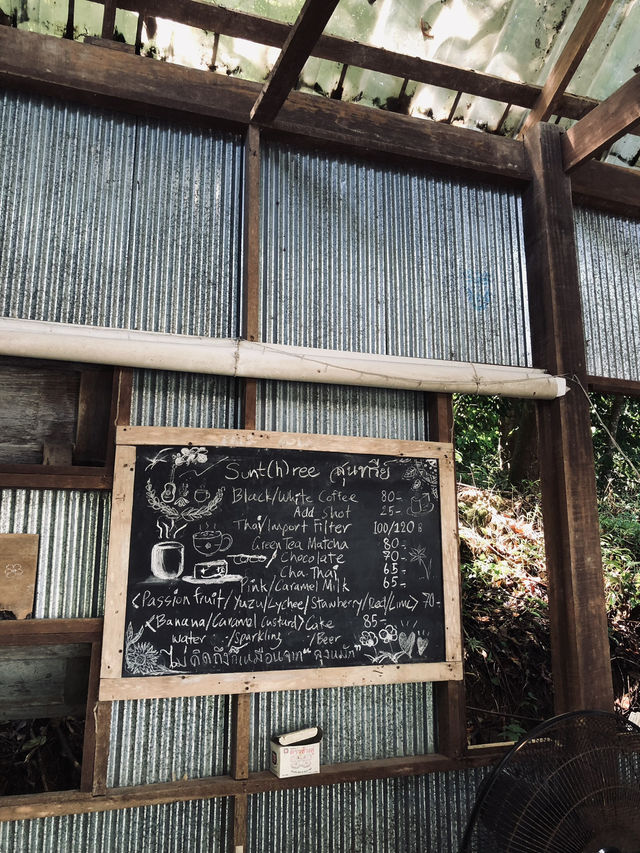 Sunt(h)ree สุนทรีย์
Black/White Coffee 80-
Add shot 25-
Thai/Import Filter 100/120฿
Green Tea Matcha 80-
/ Chocolate 70-
Cha Thai 65-
Pink/Caramel Milk 65-
<Passion fruit/Yuzu/Lychee/Strawberry/Red/Lime> 70-
<Banana/Caramel Custard> Cake 85-
water /Sparkling /Beer
ไม่คิดถึงใครเหมือนจาก